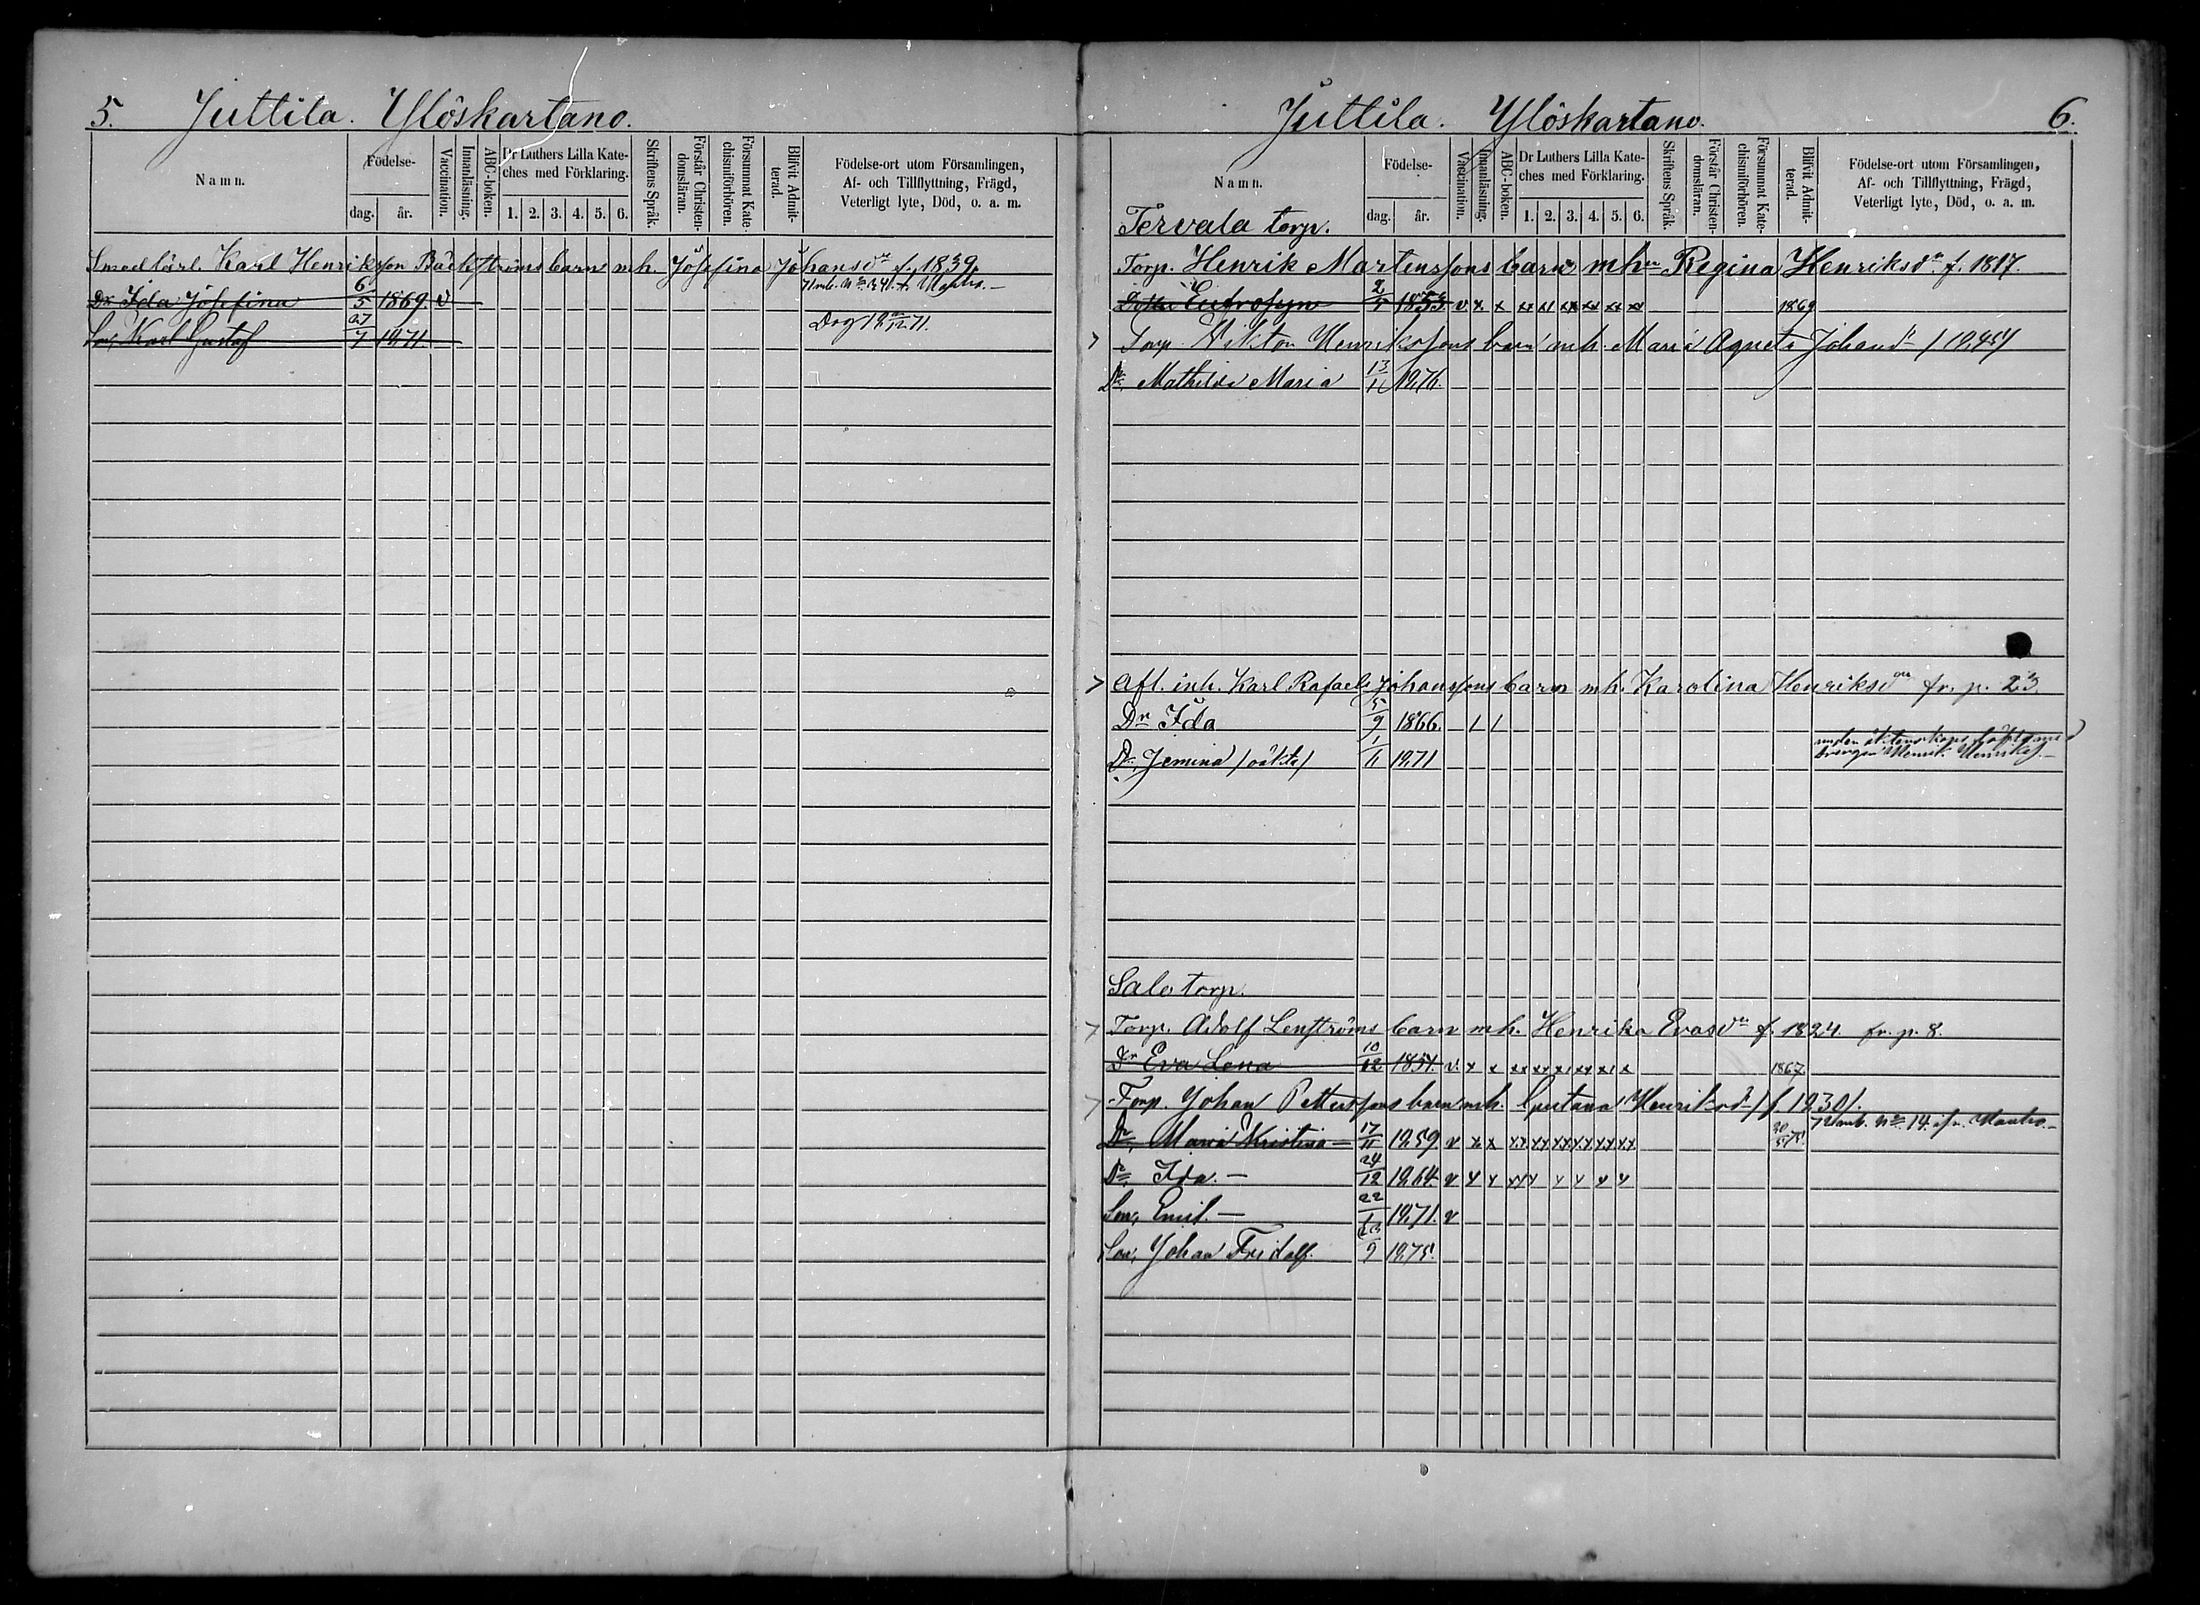 5. Juttila. Ylöskartano.
Namn.
Födelse-
dag. år.
Vaccination.
Innanläsning.
ABC-boken.
Dr Luthers Lilla Kate-
ches med Förklaring.
1. 2. 3. 4. 5. 6.
Skriftens Språk.
Förstår Christen-
domsläran.
Försummat Kate-
chismiförhören.
Blifvit Admit-
terad.
Födelse-ort utom Församlingen,
Af- och Tillflyttning, Frägd,
Veterligt lyte, Död, o. a. m.
Smedlärl. Karl Henriksson Bäckströms barn mh. Josefina Johansdr f. 1839.
Dr Ida Josefina 6/5 1869. v
Son, Karl Gustaf 27/7 1871. Dog 12/71.
Juttila. Ylöskartano. 6.
Namn.
Födelse-
dag. år.
Vaccination.
Innanläsning.
ABC-boken.
Dr Luthers Lilla Kate-
ches med Förklaring.
1. 2. 3. 4. 5. 6.
Skriftens Språk.
Förstår Christen-
domsläran.
Försummat Kate-
chismiförhören.
Blifvit Admit-
terad.
Födelse-ort utom Församlingen,
Af- och Tillflyttning, Frägd,
Veterligt lyte, Död, o. a. m.
Tervala torp.
Torp. Henrik Mårtenssons barn mhu Regina Henriksdr f. 1817.
Eufrosyn 2/5 1853. v x x xx xx xx xx xx xx 1869
Torp. Viktor Henrikssons barn mh. Maria Agneta Johansdr / 1845/
Dr. Mathilda Maria 13/11 1876.
Afl. inh. Karl Rafael Johanssons barn mh. Karolina Henriksdr fr. p. 23
Dr Ida 5/9 1866. / /
Dr. Jemina /oäkta/ 1/11 1871
Salo torp.
Torp. Adolf Lenströms barn mh. Henrika Evasdr f. 1824. fr. p. 8.
Dr Eva Lena 10/12 1851. v. x x xx xx xx xx xx x 1867
Torp. Johan Petterssons barn mh. Gustava Henriksdr / f 1830/.
Dr. Maria Kristina 17/11 1859 v x x xx xx xx xx xx xx 20/5 75. Utmb. No 14 Mantro.
Dr. Ida. 24/12 1864 v x x xx x x x x x
Son, Emil. 22/1 1871. v
Son, Johan Fridolf. 23/9 1875.